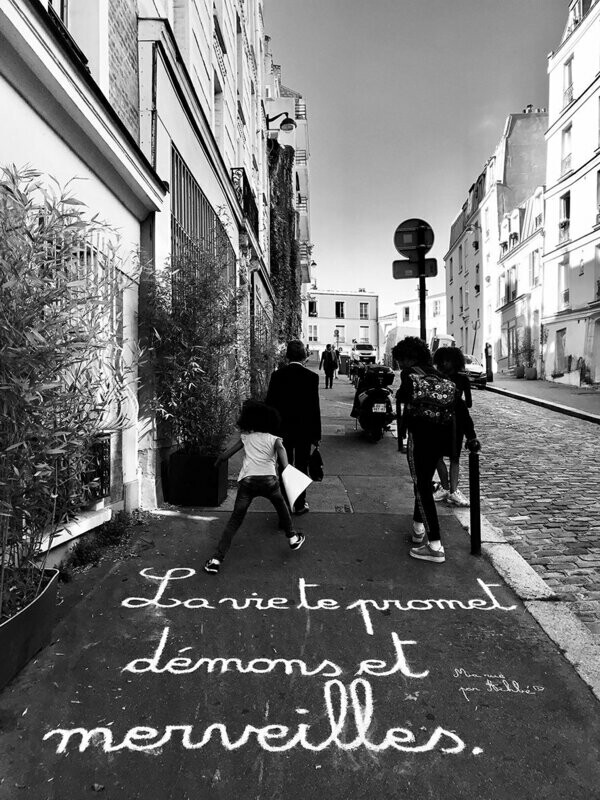 La vie te promet
démons et
merveilles.
Ma rue
par